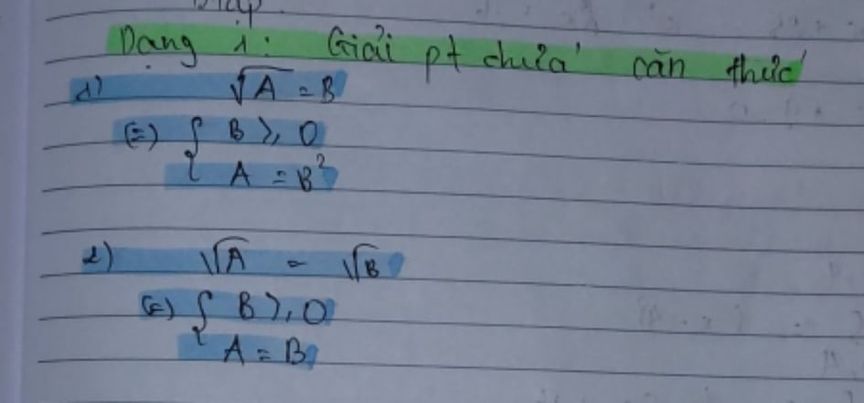 Dạng 1: Giải pt chứa căn thức
1) √A = B
(=) { B ≥ 0
A = B²
2) √A = √B
(=) { B ≥ 0
A = B